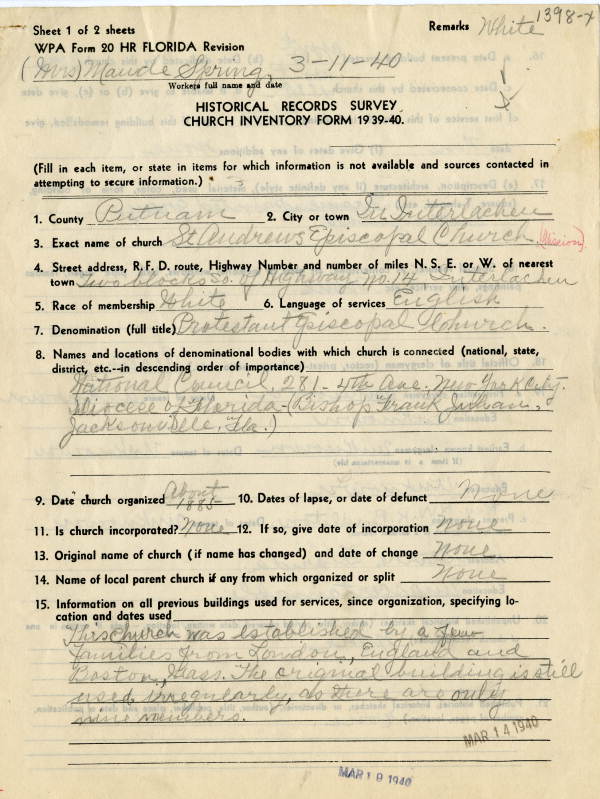 Sheet 1 of 2 sheets
Remarks White 1398-x
WPA Form 20 HR FLORIDA Revision
(Mrs) Maude Spring, 3-11-40
Workers full name and date
HISTORICAL RECORDS SURVEY
CHURCH INVENTORY FORM 1939-40.
(Fill in each item, or state in items for which information is not available and sources contacted in
attempting to secure information.)
1. County Putnam 2. City or town In Interlachen
3. Exact name of church St Andrews Episcopal Church (Mission)
4. Street address, R. F. D. route, Highway Number and number of miles N. S. E. or W. of nearest
town Two blocks So. of Highway No. 14, Interlachen
5. Race of membership White 6. Language of services English
7. Denomination (full title) Protestant Episcopal Church.
8. Names and locations of denominational bodies with which church is connected (national, state,
district, etc.--in descending order of importance)
National Council, 281-4th Ave. New York City.
Diocese of Florida-(Bishop Frank Juhan,
Jacksonville, Fla.)
9. Date church organized About 1885 10. Dates of lapse, or date of defunct None
11. Is church incorporated? None 12. If so, give date of incorporation None
13. Original name of church (if name has changed) and date of change None
14. Name of local parent church if any from which organized or split None
15. Information on all previous buildings used for services, since organization, specifying lo-
cation and dates used
This church was established by a few
families from London, England and
Boston, Mass. The original building is still
used irregularly, as there are only
nine members.
MAR 14 1940
MAR 19 1940